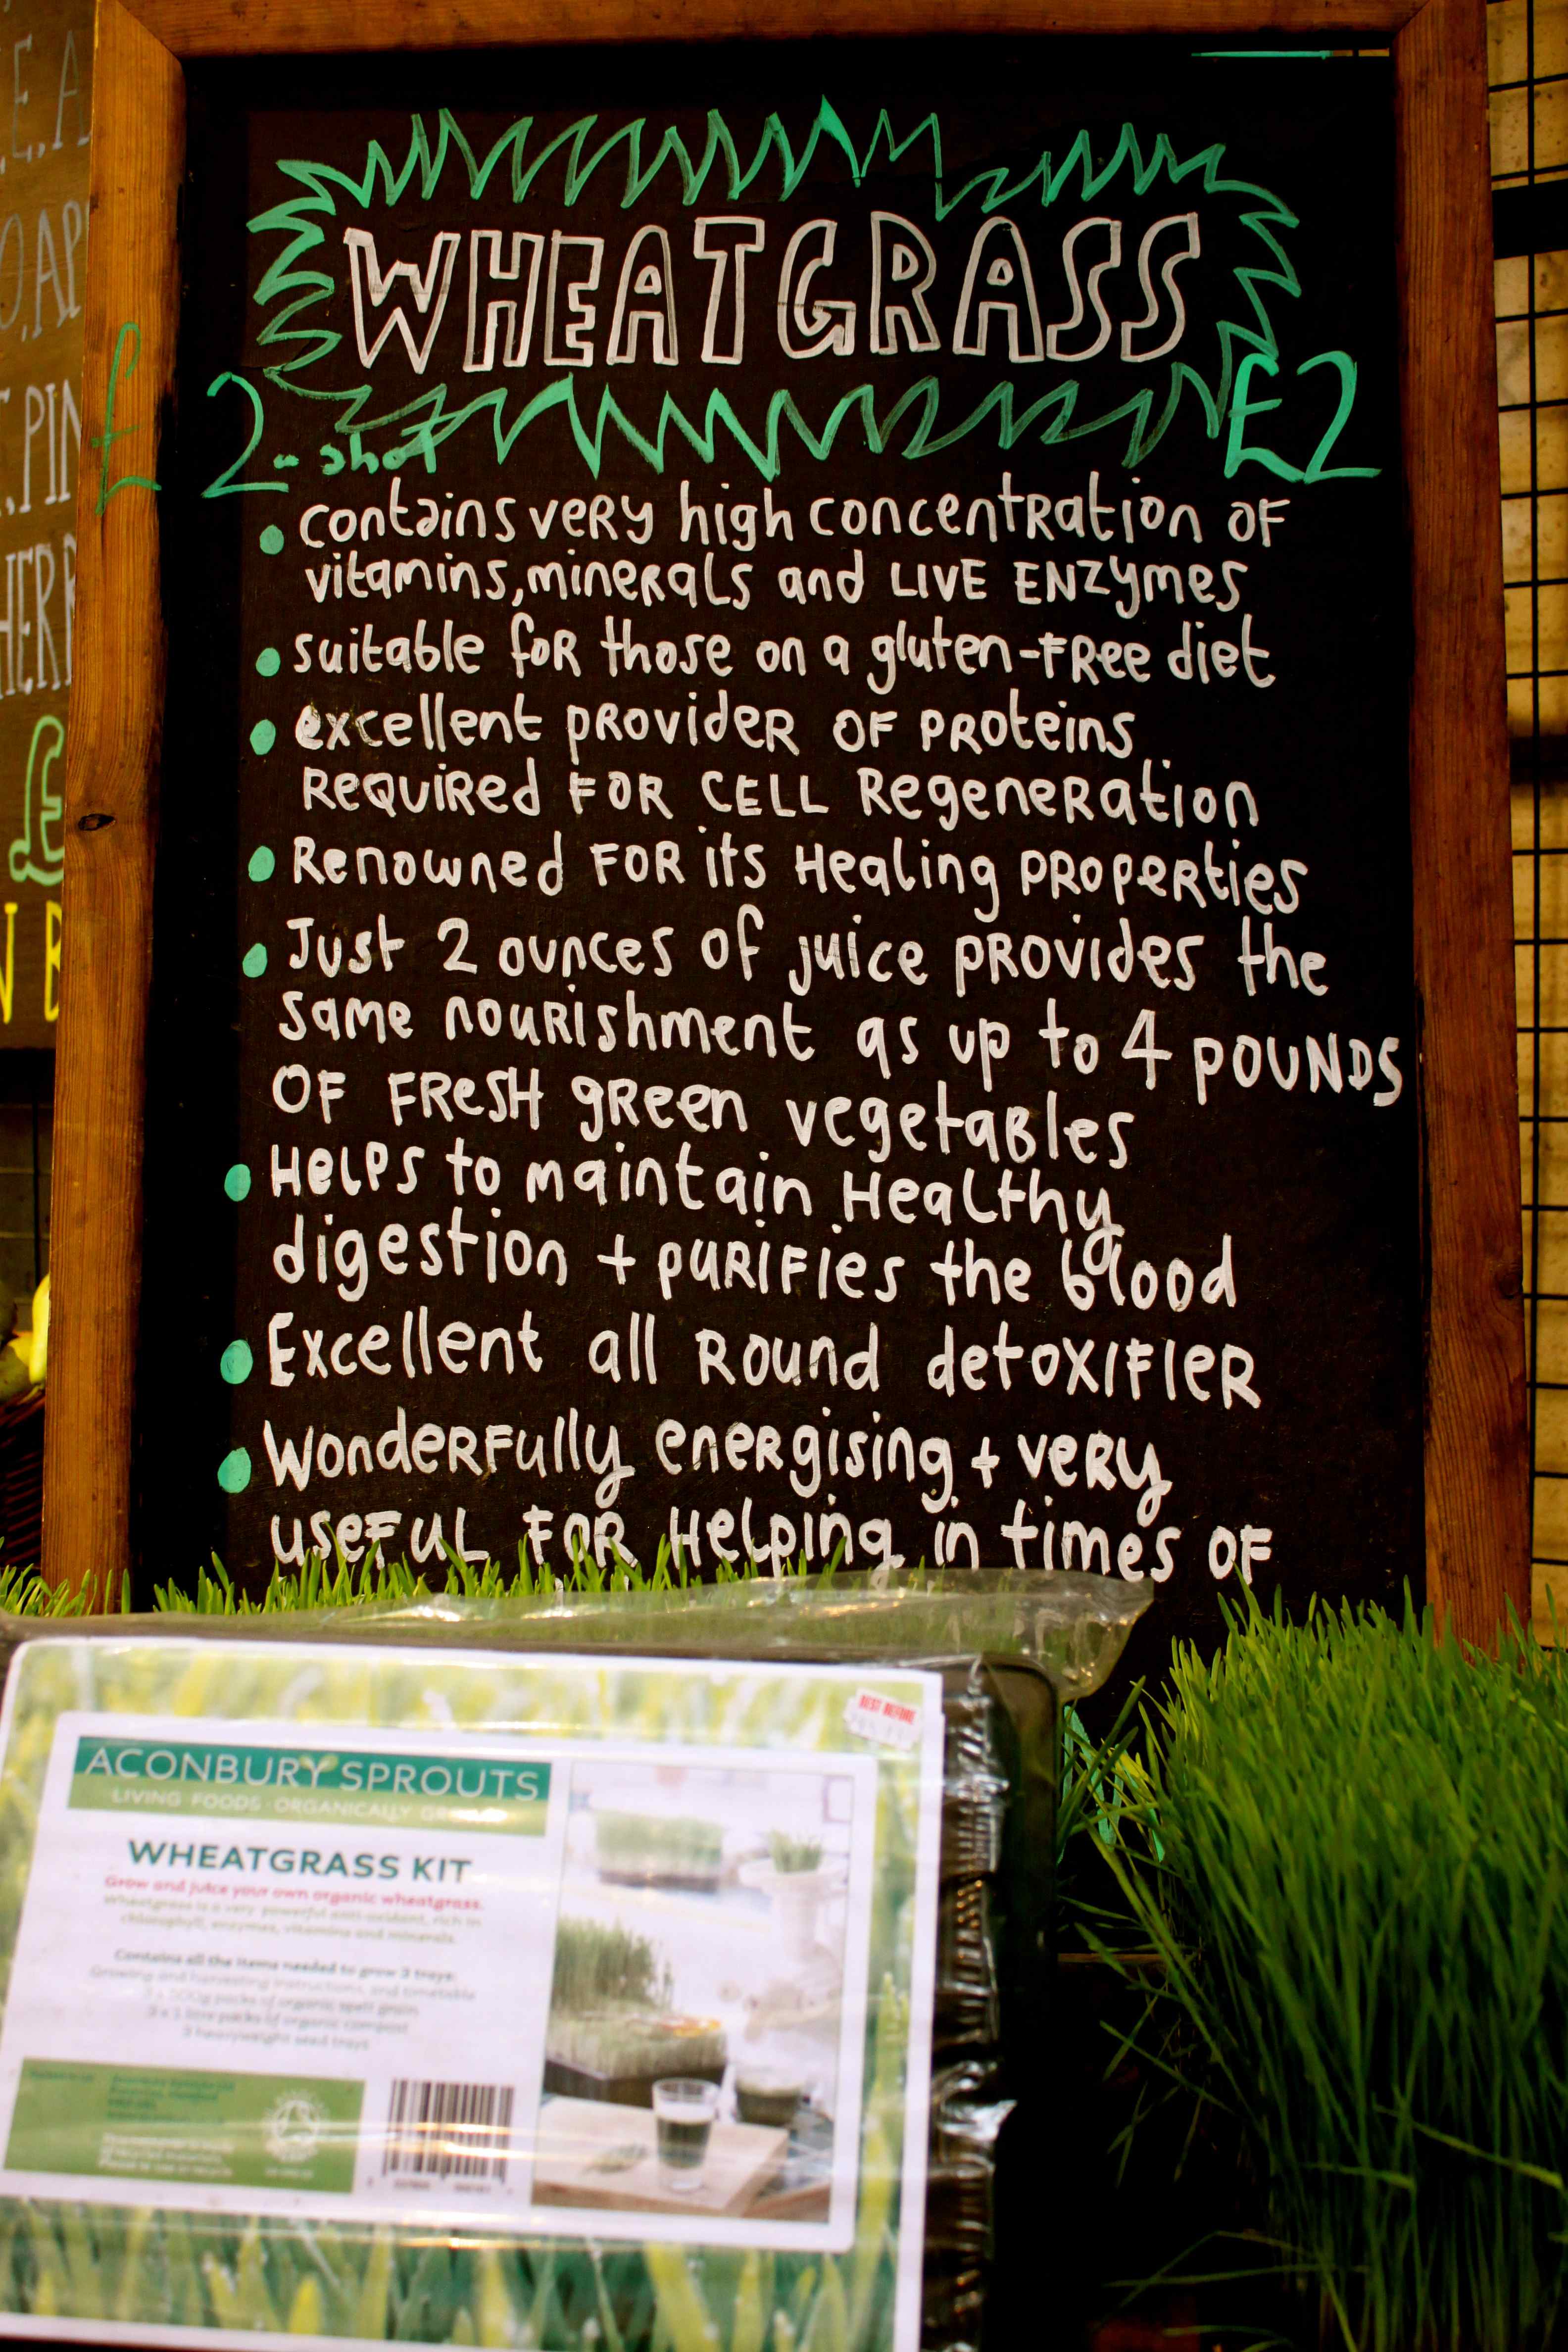 WHEATGRASS
£2 - shot
£2
• contains very high concentration of
vitamins, minerals and LIVE ENZymes
• suitable for those on a gluten-free diet
• excellent provider of proteins
required for CELL Regeneration
• Renowned for its Healing properties
• Just 2 ounces of juice provides the
same nourishment as up to 4 POUNDS
OF FRESH green vegetables
• Helps to maintain Healthy
digestion + purifies the blood
• Excellent all Round detoxifier
• Wonderfully energising + very
useful for Helping in times of
BEST BEFORE
ACONBURY SPROUTS
LIVING FOODS · ORGANICALLY
WHEATGRASS KIT
Grow and juice your own organic wheatgrass.
Wheatgrass is a very powerful anti-oxidant, rich in
chlorophyll, enzymes, vitamins and minerals.
Contains all the items needed to grow 3 trays:
Growing and harvesting instructions, and timetable
3 x 500g packs of organic spelt grain
3 x 1 litre packs of organic compost
3 heavyweight seed trays